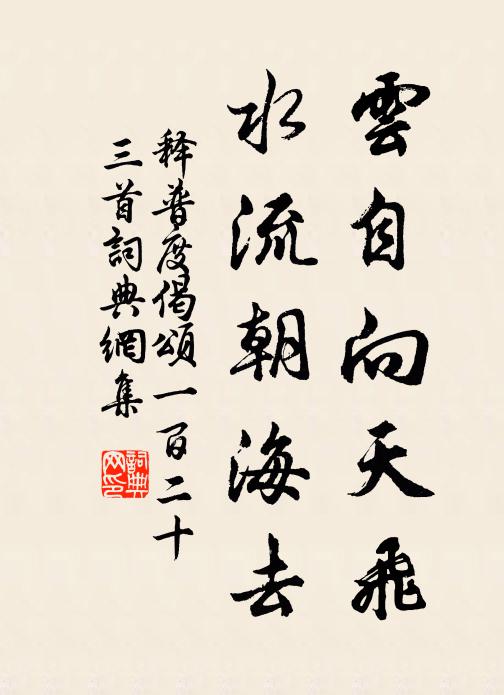 雲自向天飛
水流朝海去
释普度偈頌一百二十
三首詞典網集
詞典
网印